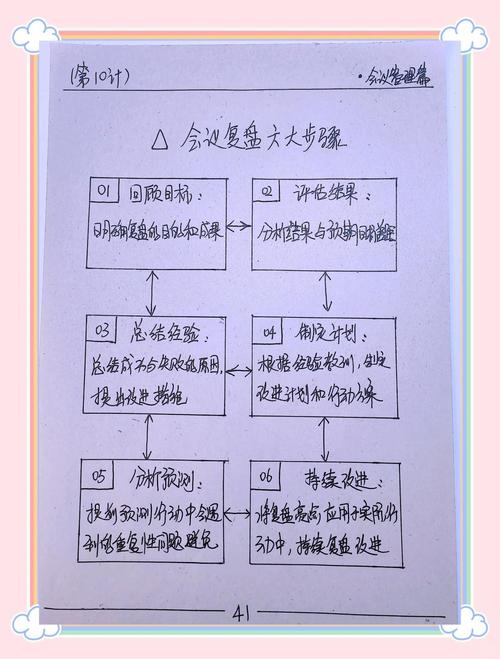 (第10计)
·会议管理篇
△ 会议复盘六大步骤
01 回顾目标:
明确复盘的目的和成果
02 评估结果:
分析结果与预期目标差距
03 总结经验:
总结成功与失败的原因,
提出改进措施
04 制定计划:
根据经验教训,制定
改进计划和行动方案
05 分析预测:
提前预测行动中会遇
到的重复性问题避免
06 持续改进:
将复盘亮点,应用于实际行
动中,持续复盘改进
41